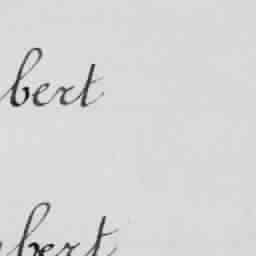 bert
bert